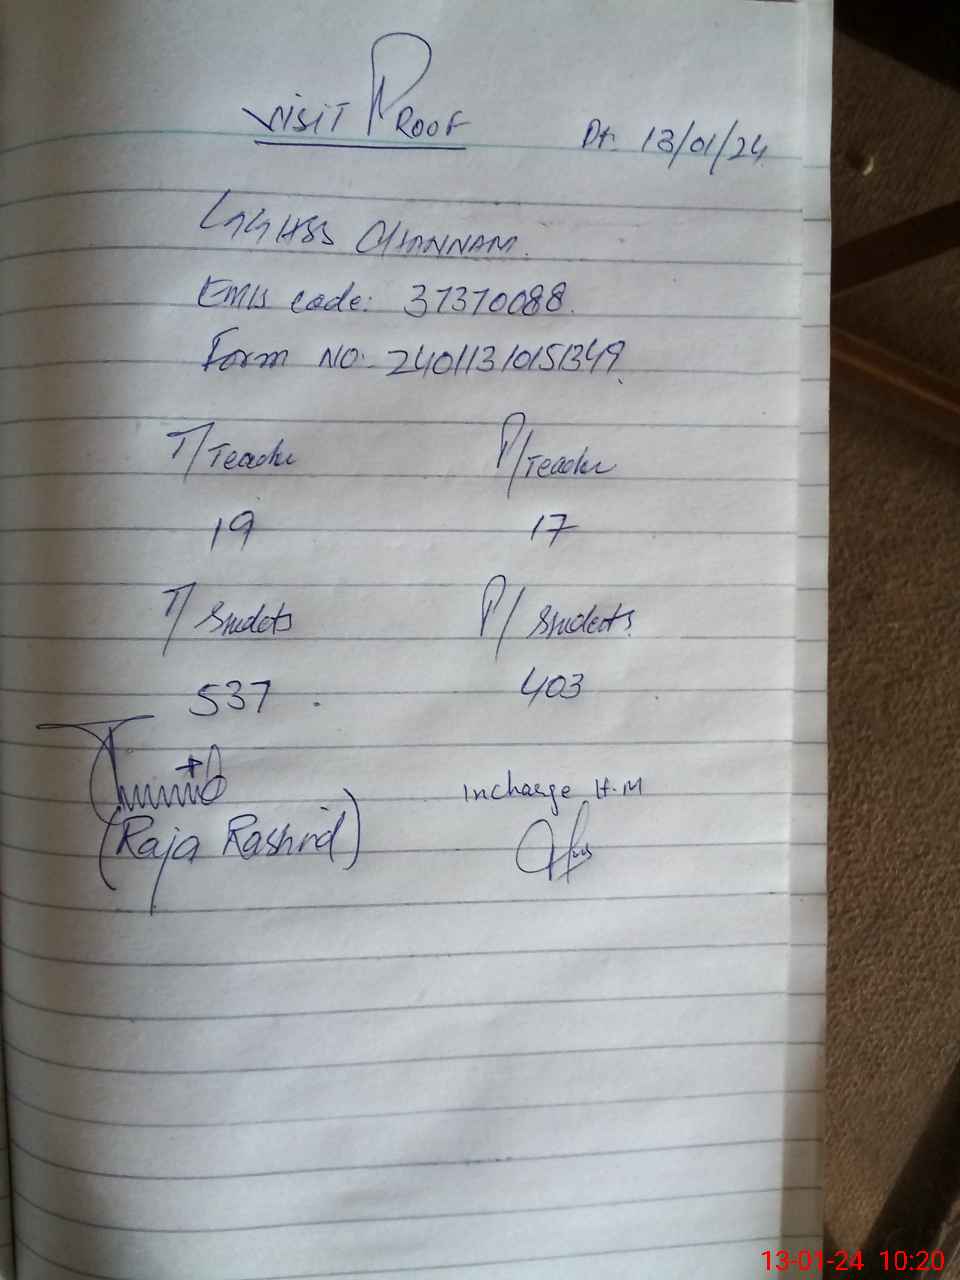 VISIT PROOF
Dt: 13/01/24
GGHSS CHANNAM.
EMIS code: 37370088.
Form NO: 24011310151349.
T/Teacher P/Teacher
19 17
T/Students P/Students
537 403
(Raja Rashid)
incharge H.M
13-01-24 10:20